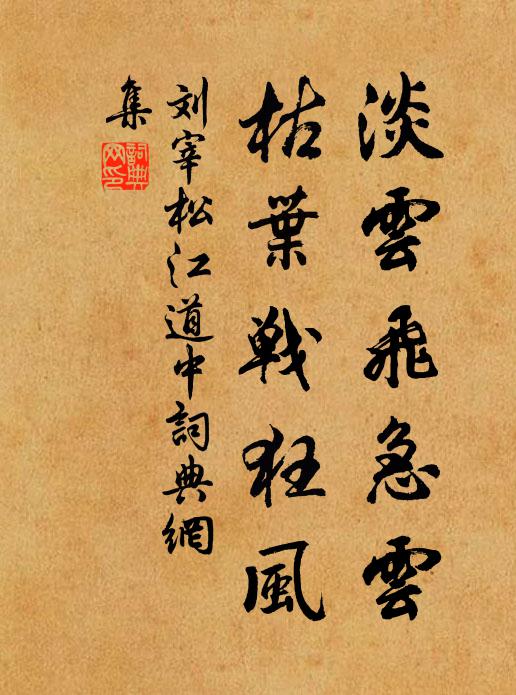 淡雲飛急雲
枯葉戰狂風
刘宰松江道中詞典網
集
詞典
网印